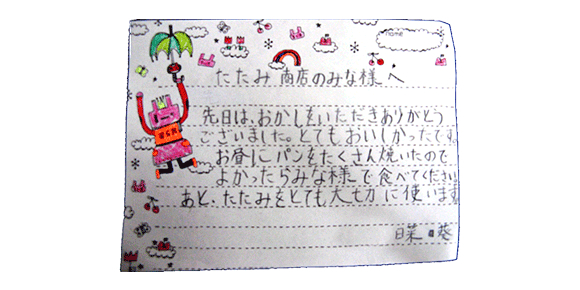 name
たたみ商店のみな様へ
先日は、おかしをいただきありがとう
ございました。とてもおいしかったです。
お昼にパンをたくさん焼いたので
よかったらみな様で食べてください
あと、たたみをとても大切に使います
日菜 葵